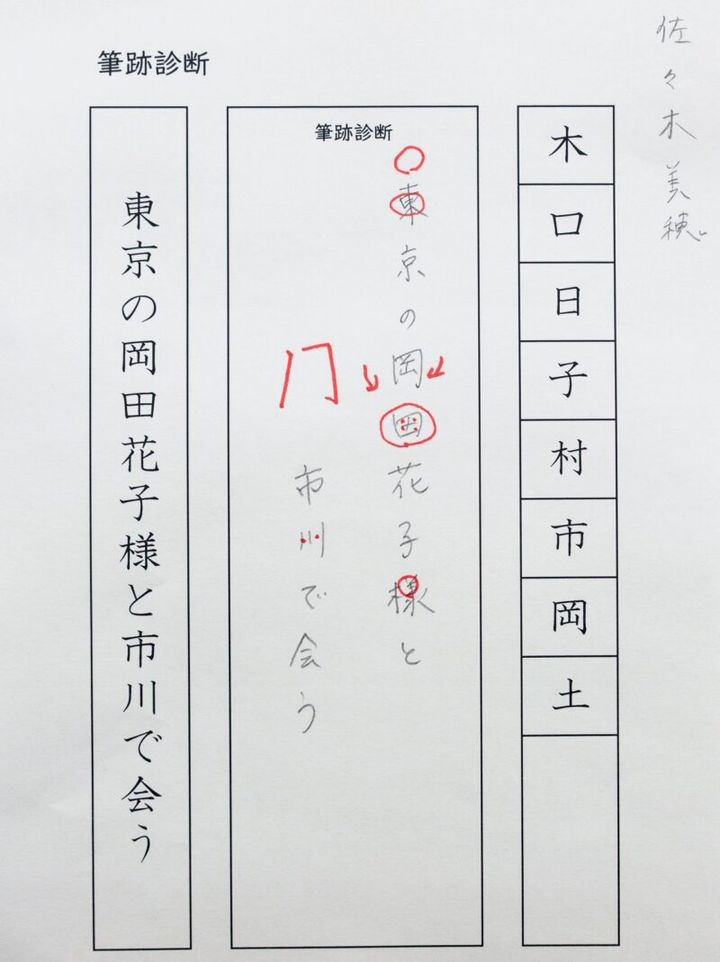 佐々木美穂
木
口
日
子
村
市
岡
土
筆跡診断
東京の岡田花子様と
市川で会う
筆跡診断
東京の岡田花子様と市川で会う